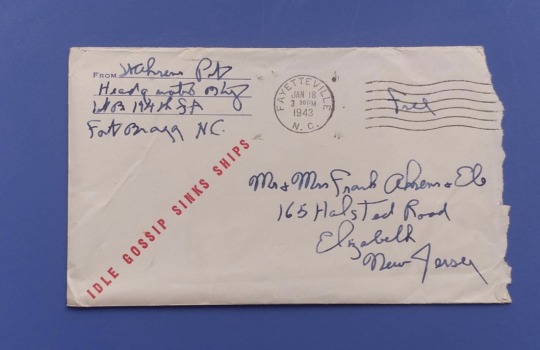 FROM H Ahrens Pvt
Headq
194th FA
Fort Bragg NC.
FAYETTEVILLE
JAN 18
3 30 PM
1943
N.C.
Free
IDLE GOSSIP SINKS SHIPS
Mr & Mrs Frank Ahrens &
165 Halsted Road
Elizabeth
New Jersey